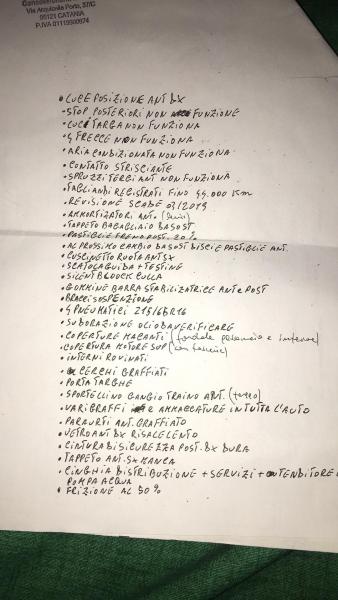 Via Acquicella Porto, 37/C
95121 CATANIA
P.IVA 01119500874
• LUCE POSIZIONE ANT DX
• STOP POSTERIORI NON FUNZIONE
• LUCI TARGA NON FUNZIONA
• 4 FRECCE NON FUNZIONA
• ARIA CONDIZIONATA NON FUNZIONA
• CONTATTO STRISCIANTE
• SPRUZZI TERGI ANT NON FUNZIONA
• TAGLIANDI REGISTRATI FINO 44.000 KM
• REVISIONE SCADE 03/2019
• AMMORTIZZATORI ANT.
• TAPPETO BAGAGLIAIO BASOST
• PASTIGLIE FRENO POST. 20%
• AL PROSSIMO CAMBIO BASOST DISCI E PASTIGLIE ANT.
• CUSCINETTO RUOTA ANT SX
• SCATOLA GUIDA + TESTINE
• SILENT BLOCK CULLA
• GOMMINE BARRA STABILIZATRICE ANT E POST
• BRACCI SOSPENZIONE
• 4 PNEUMATICI 215/65R16
• SUDORAZIONE OLIO DAVERIFICARE
• COPERTURE MACANTI (fondale paramotore e interne)
• COPERTURA MOTORE SUP
• INTERNI ROVINATI
• CERCHI GRAFFIATI
• PORTA TARGHE
• SPORTELLINO GANGIO TRAINO ANT. (tappo)
• VARI GRAFFI E AMMACCATURE IN TUTTA L'AUTO
• PARAURTI ANT. GRAFFIATO
• VETRO ANT DX RISALE LENTO
• CINTURA DI SICUREZZA POST. DX DURA
• TAPPETO ANT. SX MANCA
• CINGHIA DISTRIBUZIONE + SERVIZI + TENDITORE
POMPA ACQUA
• FRIZIONE AL 50%